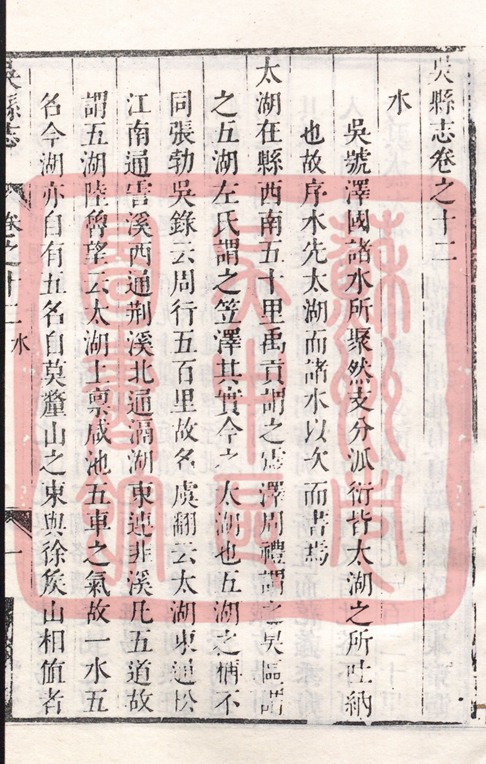 吳縣志卷之十二
水
吳號澤國諸水所聚然支分派衍皆太湖之所吐納
也故序水先太湖而諸水以次而書焉
太湖在縣西南五十里禹貢謂之震澤周禮謂之具區謂
之五湖左氏謂之笠澤其實今之太湖也五湖之稱不
同張勃吳錄云周行五百里故名虞翻云太湖東通松
江南通霅溪西通荆溪北通滆湖東連韭溪凡五道故
謂五湖陸魯望云太湖上禀咸池五車之氣故一水五
名今湖亦自有五名自莫釐山之東與徐矦山相值者
吳縣志
卷之十二
水
一